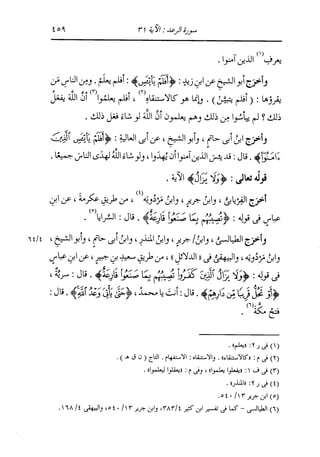 سورة الرعد : الآية ٣١ ٤٥٩
يعرف(١) الذين آمنوا .
وأخرج أبو الشيخ عن ابن زيد : ﴿أفلم يايئس﴾ : أفلم يعلم . ومن الناس من
يقرؤها : ( أفلم يتبيّن ) . وإنما هو كالاستنقاه(٢) ، أفلم يعلموا(٣) أن اللَّه يفعل
ذلك ؟ لم ييأسوا من ذلك وهم يعلمون أن اللَّه لو شاء فعل ذلك .
وأخرج ابن أبى حاتم ، وأبو الشيخ ، عن أبى العالية : ﴿أفلم يايئس الذين
ءامنوا﴾ . قال : قد يئس الذين آمنوا أن يُهدوا ، ولو شاء اللَّه لهدى الناس جميعًا .
قوله تعالى : ﴿ولا يزال﴾ الآية .
أخرج الفريابى ، وابن جرير ، وابن مَرْدُويَه(٤) ، من طريق عكرمة ، عن ابن
عباس فى قوله : ﴿تصيبهم بما صنعوا قارعة﴾ . قال : السرايا(٥) .
وأخرج الطيالسى ، وابن/ جرير ، وابن المنذر ، وابن أبى حاتم ، وأبو الشيخ ، ٦٤/٤
وابن مَرْدُويَه ، والبيهقى فى « الدلائل » ، من طريق سعيد بن جبير ، عن ابن عباس
فى قوله : ﴿ولا يزال الذين كفروا تصيبهم بما صنعوا قارعة﴾ . قال : سرية ،
﴿أو تحل قريبا من دارهم﴾ . قال : أنت يا محمد ، ﴿حتى يأتى وعد الله﴾ . قال :
فتح مكة(٦) .
(١) فى ر ٢: «يعلم» .
(٢) فى م : «كالاستنقاء» . والاستنقاه : الاستفهام . التاج ( ن ق هـ ) .
(٣) فى ف ١: «يفعلوا يعلموا» ، وفى م : «يعقلوا ليعلموا» .
(٤) فى ر ٢: «المنذر» .
(٥) ابن جرير ١٣/ ٥٤٠.
(٦) الطيالسى - كما فى تفسير ابن كثير ٤/ ٣٨٣ ، وابن جرير ١٣/ ٥٤٠ ، والبيهقى ٤/ ١٦٨.